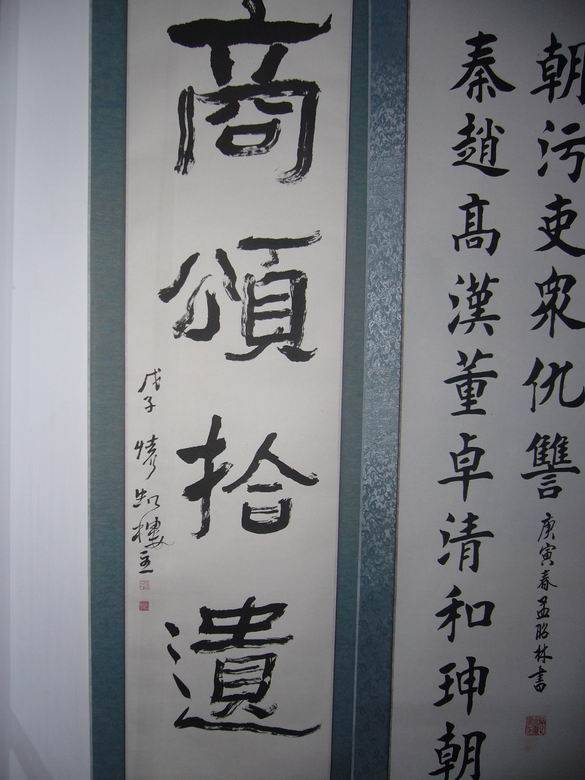 秦趙高漢董卓清和珅朝
朝污吏衆仇讐
庚寅春孟昭林書
商頌拾遺
戊子 樓主